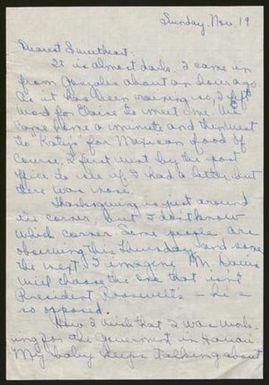 Sunday, Nov. 19
Dearest Sweetheart,
It is almost dark. I came in
from Gonzales about an hour ago
as it has been raining so, I left
word for Claire to meet me. We
came home a minute and then went
to "Katy's" for Mexican food of
course. I first went by the post
office to see if I had a letter but
there was none.
Thanksgiving is just around
the corner, but I don't know
which corner. Some people are
observing this Thursday and some
the next. I imagine Mr. Davis
will choose the one that isn't
President Roosevelt's - he is
so opposed.
How I wish that I was work-
ing for the Government in Hawaii
My baby keeps talking about